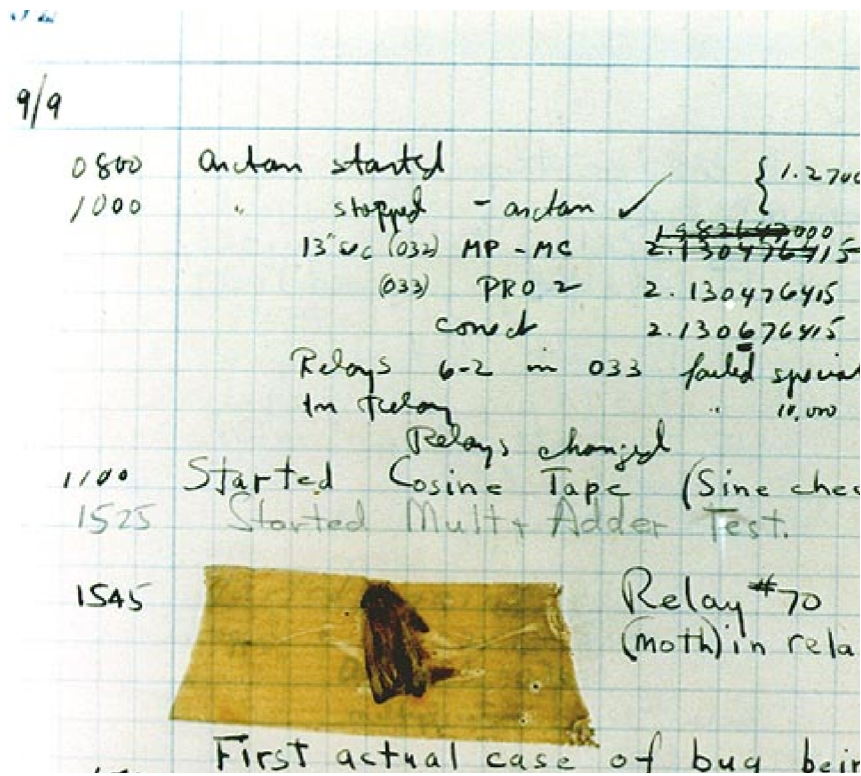 9/9
0800 arctan started { 1.2700
1000 " stopped - arctan ✓
13" uc (032) MP - MC 2.130476415
(033) PRO 2 2.130476415
conect 2.130676415
Relays 6-2 in 033 failed special
In Relay " 10,000
Relays changed
1100 Started Cosine Tape (Sine chec
1525 Started Mult + Adder Test.
1545 Relay #70
(moth) in rela
First actual case of bug bein